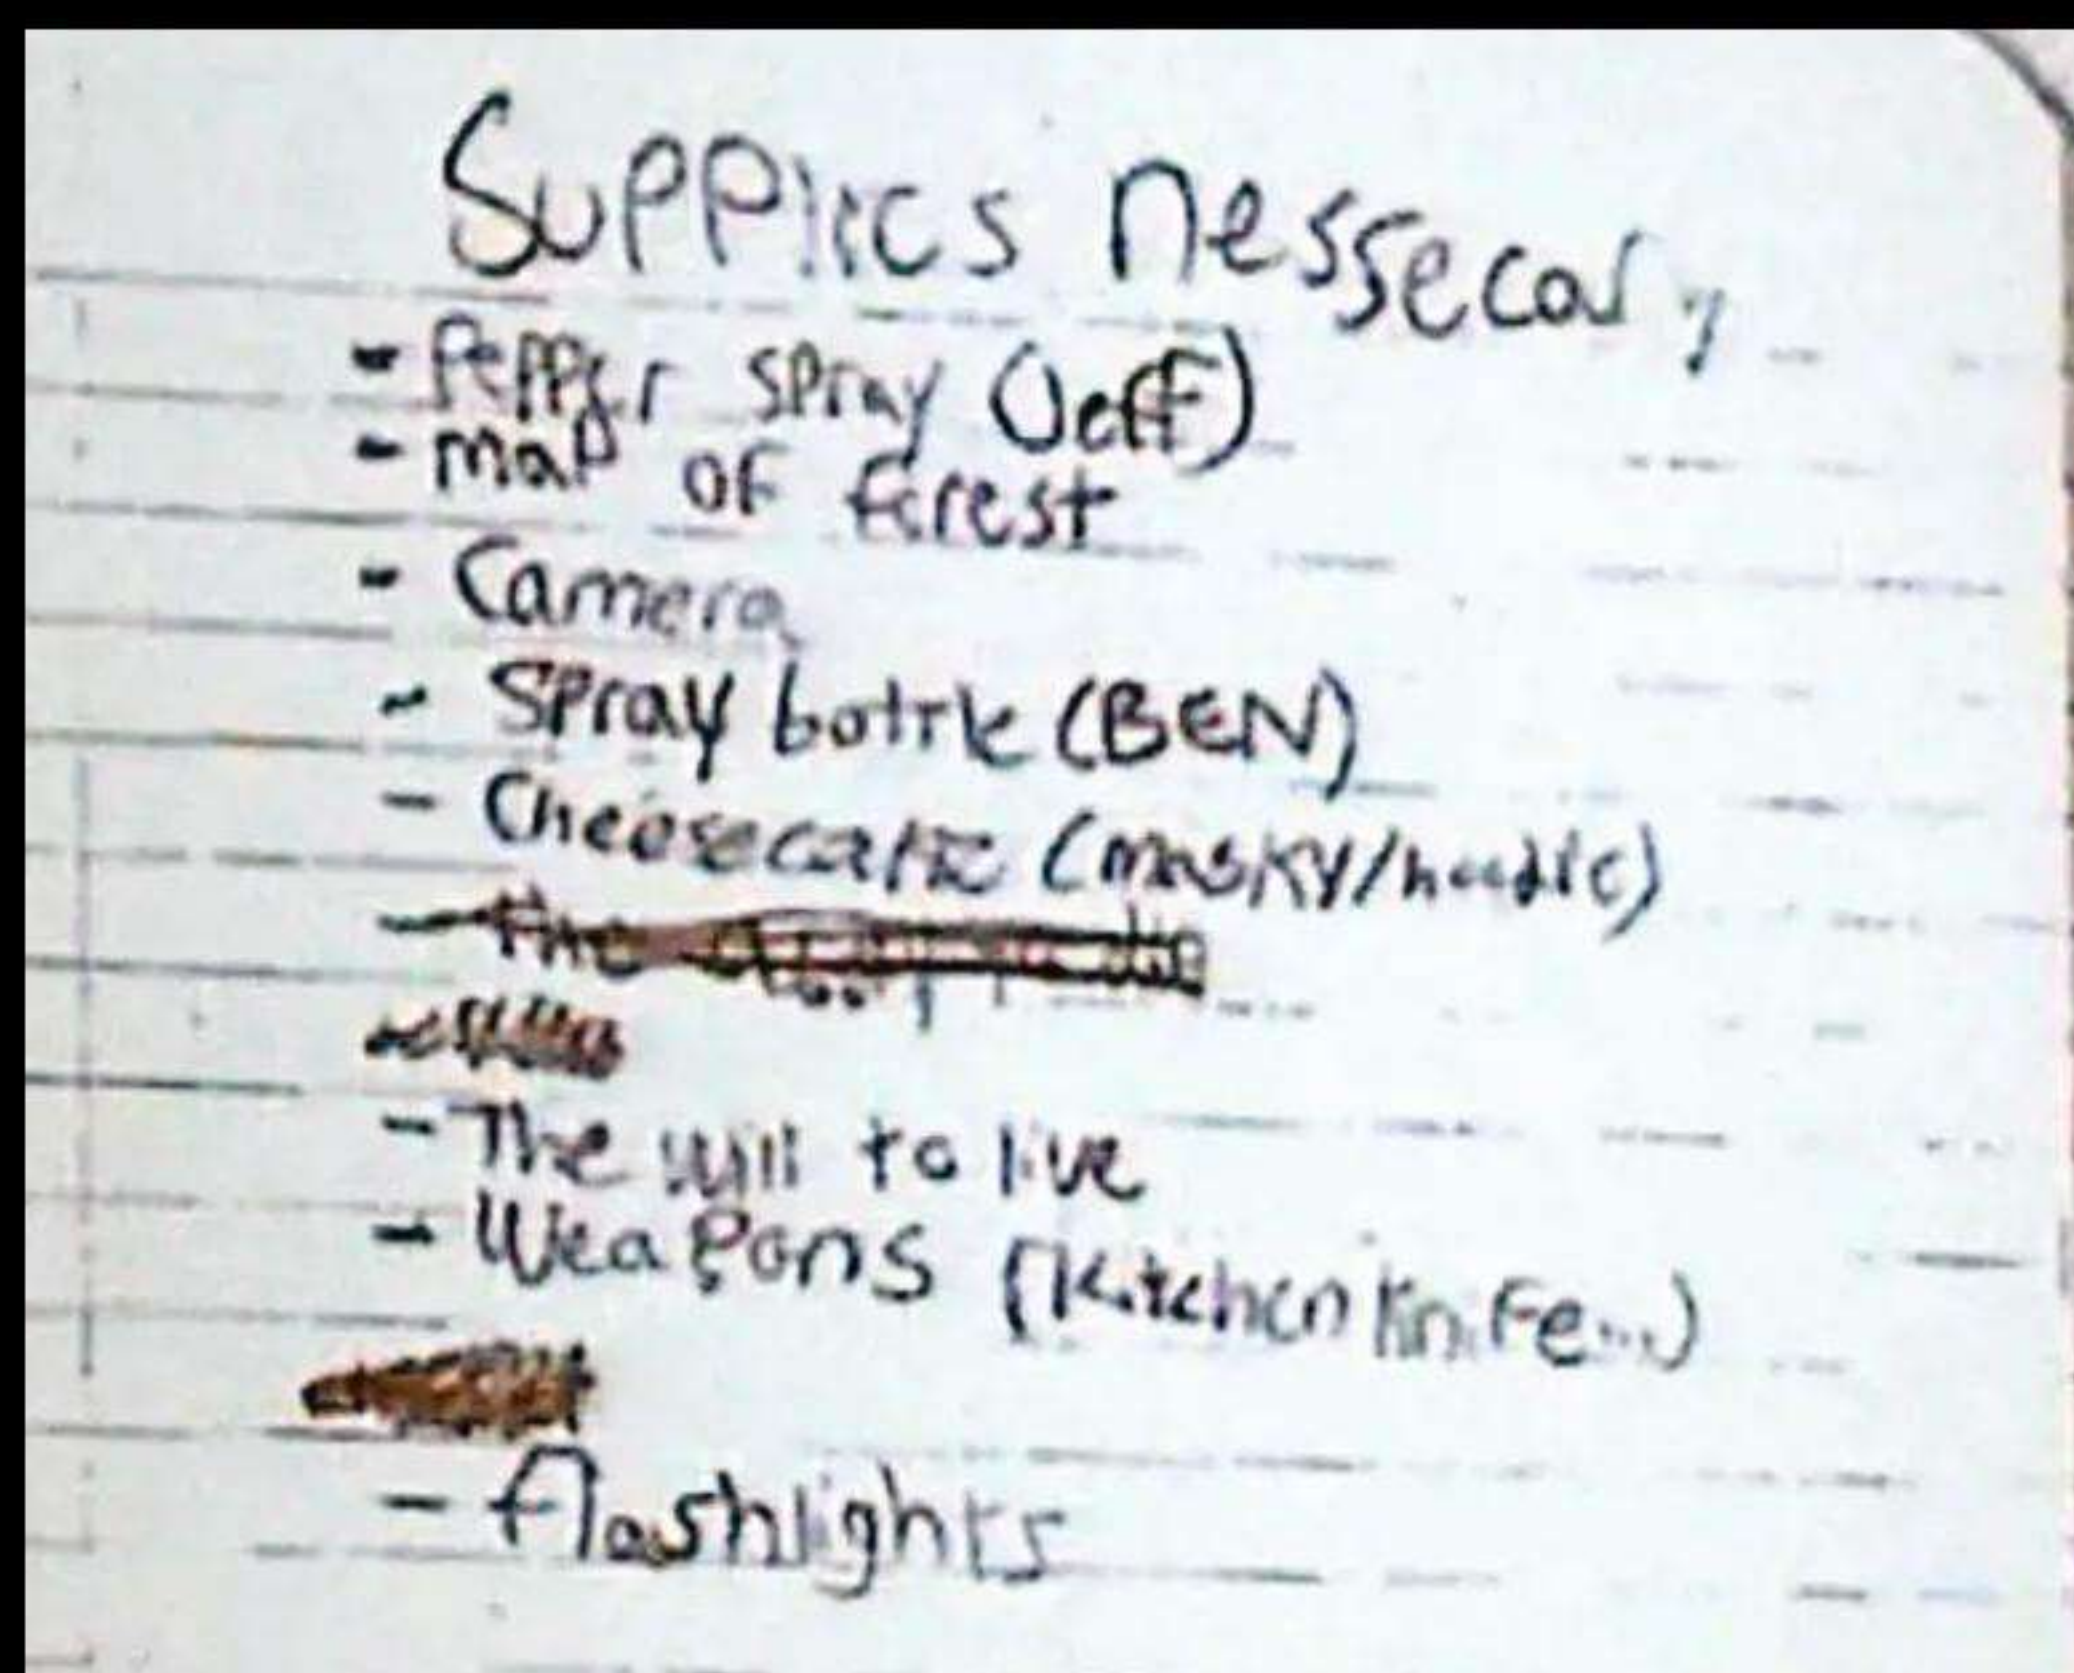 Supplies nessecary
- Pepper spray (Jeff)
- map of forest
- Camera
- Spray bottle (BEN)
- Cheesecake (masky/hoodie)
- the
- The will to live
- Weapons (Kitchen knife...)
- flashlights